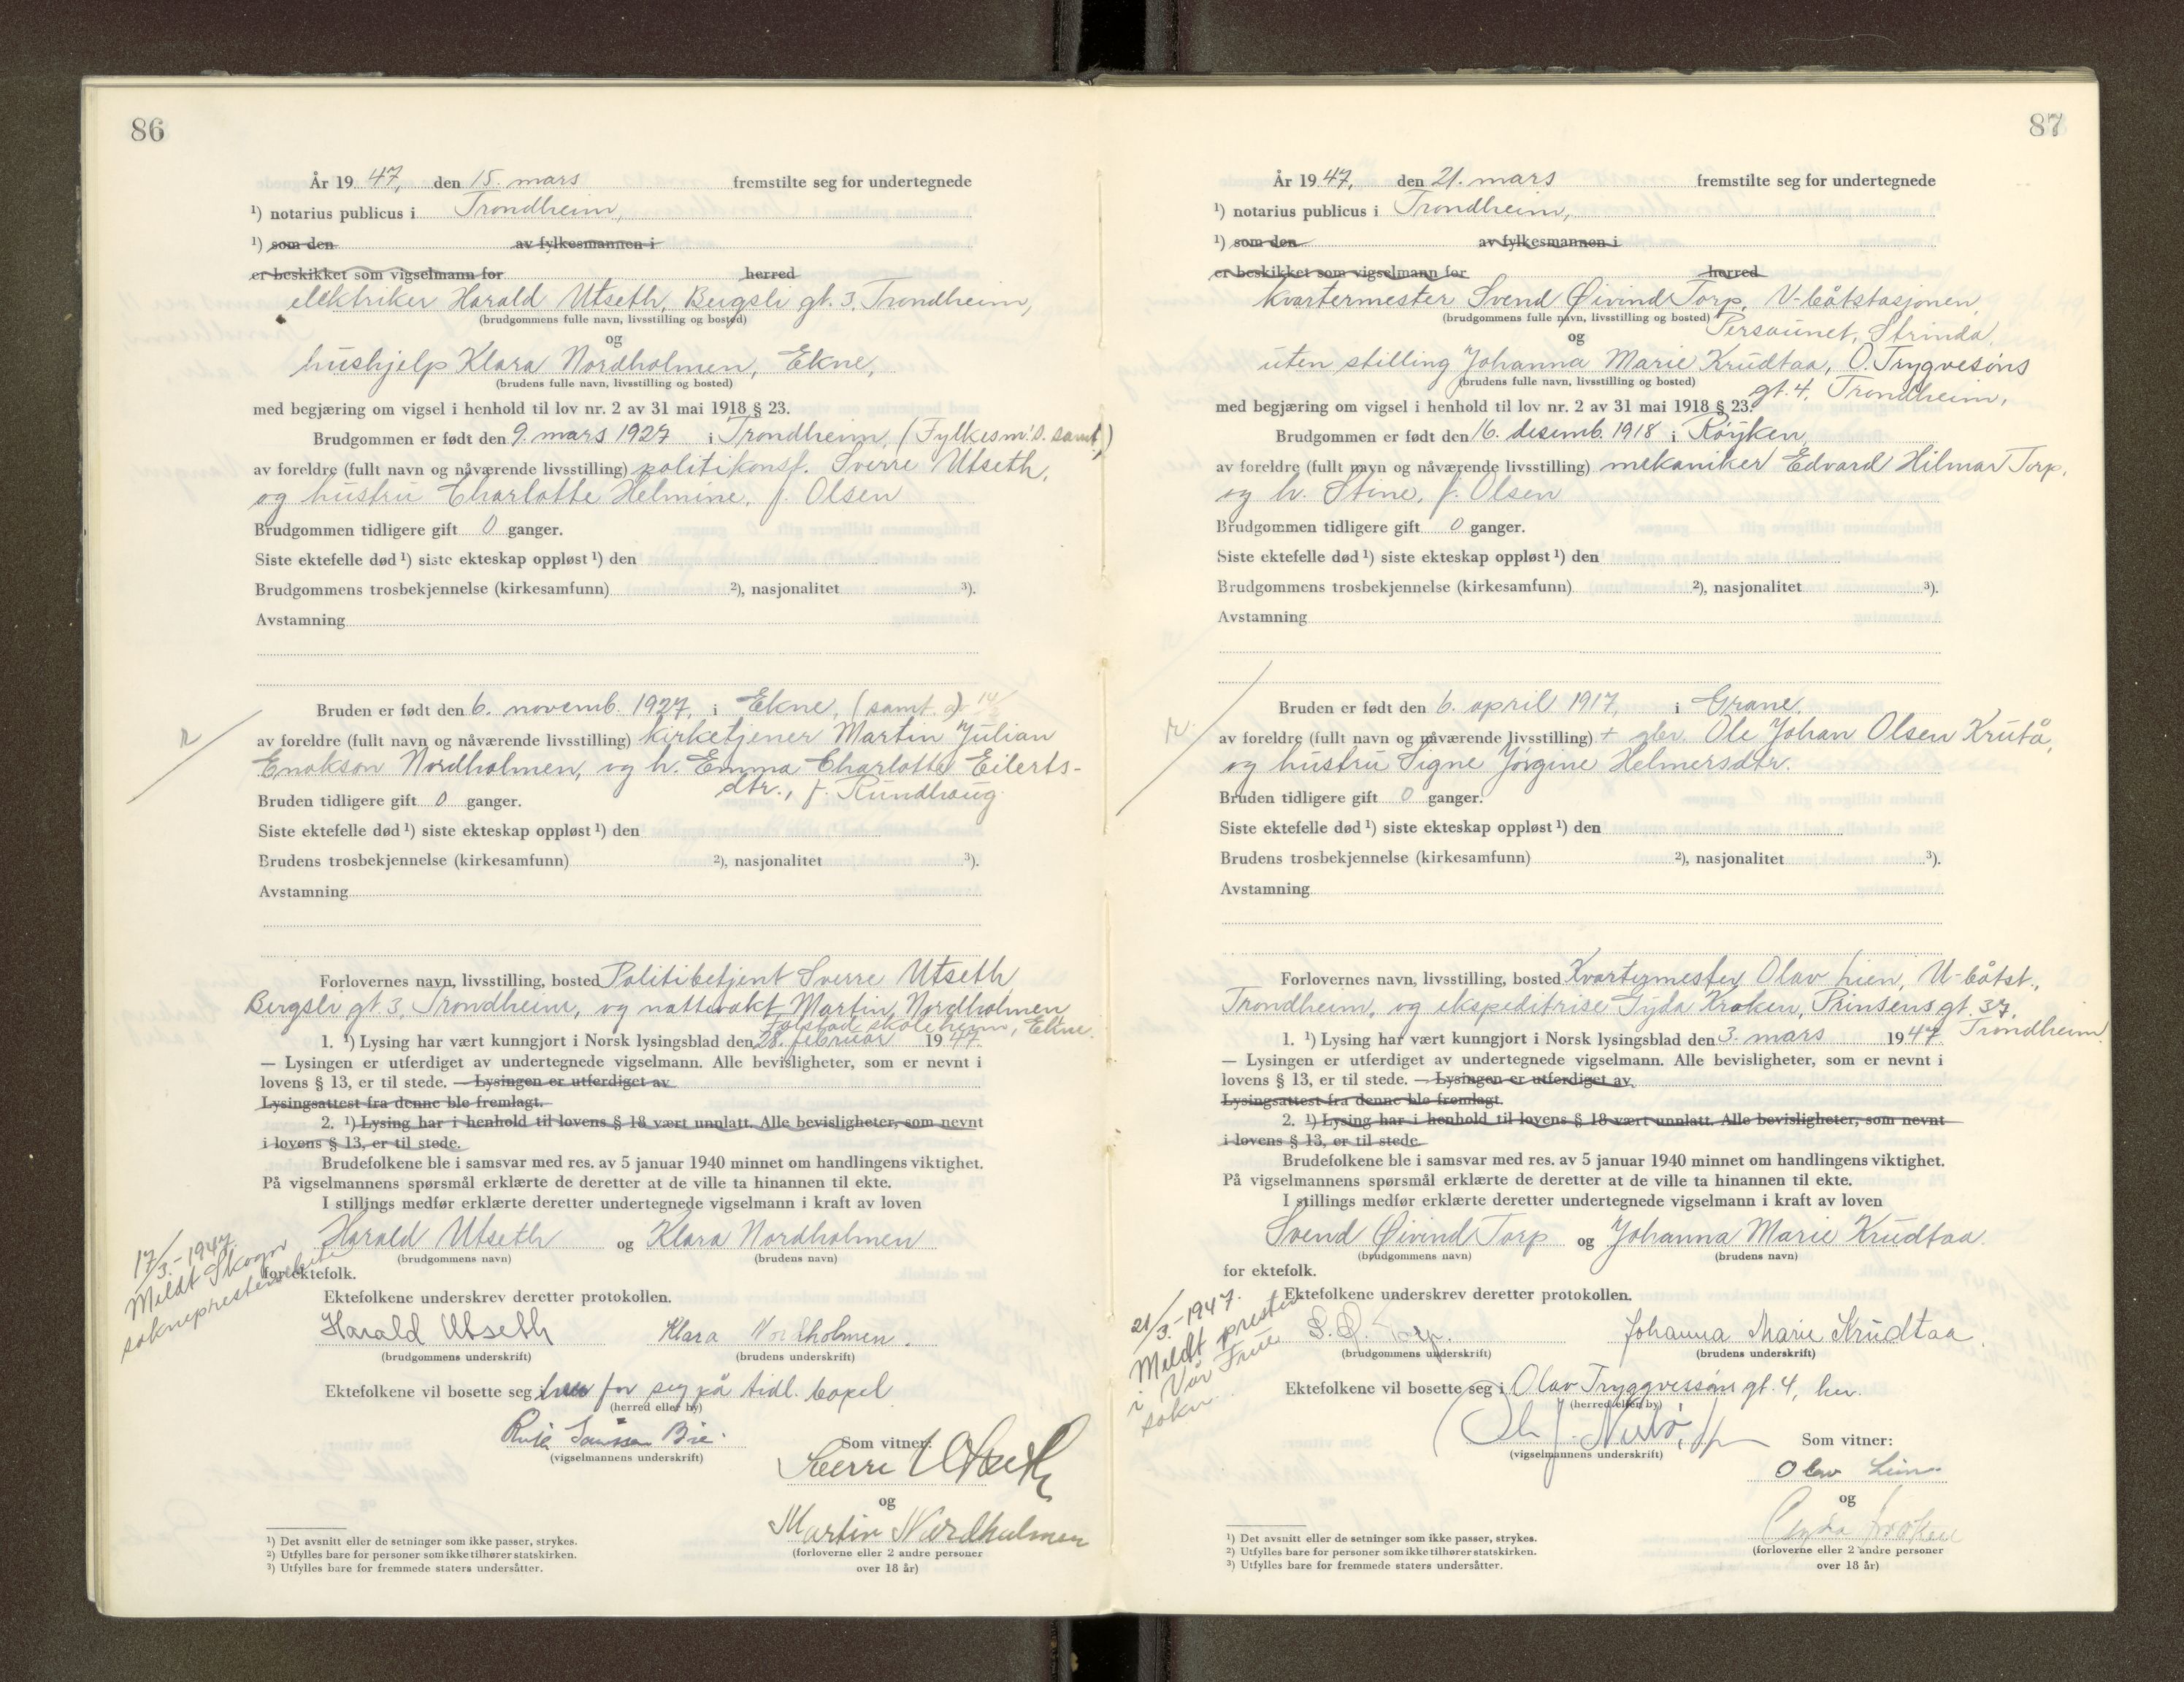 86
År 19 47, den 15. mars fremstilte seg for undertegnede
¹) notarius publicus i Trondheim,
¹) som den av fylkesmannen i
er beskikket som vigselmann for herred
elektriker Harald Utseth, Bergsli gt. 3, Trondheim,
(brudgommens fulle navn, livsstilling og bosted)
og
hushjelp Klara Nordholmen, Ekne,
(brudens fulle navn, livsstilling og bosted)
med begjæring om vigsel i henhold til lov nr. 2 av 31 mai 1918 § 23.
Brudgommen er født den 9. mars 1927 i Trondheim, (Fylkesm's. samt.)
av foreldre (fullt navn og nåværende livsstilling) politikonst. Sverre Utseth,
og hustru Charlotte Helmine, f. Olsen
Brudgommen tidligere gift 0 ganger.
Siste ektefelle død ¹) siste ekteskap oppløst ¹) den
Brudgommens trosbekjennelse (kirkesamfunn) ²), nasjonalitet ³).
Avstamning
Bruden er født den 6. novemb. 1927, i Ekne, (samt. av 14/
av foreldre (fullt navn og nåværende livsstilling) kirketjener Martin Julian
Enokson Nordholmen, og h. Emma Charlotte Eilerts-
dtr., f. Rundhaug
Bruden tidligere gift 0 ganger.
Siste ektefelle død ¹) siste ekteskap oppløst ¹) den
Brudens trosbekjennelse (kirkesamfunn) ²), nasjonalitet ³).
Avstamning
Forlovernes navn, livsstilling, bosted Politibetjent Sverre Utseth,
Bergsli gt. 3, Trondheim, og nattevakt Martin Nordholmen
Falstad skoleheim, Ekne.
1. ¹) Lysing har vært kunngjort i Norsk lysingsblad den 28. februar 19 47.
— Lysingen er utferdiget av undertegnede vigselmann. Alle bevisligheter, som er nevnt i
lovens § 13, er til stede. — Lysingen er utferdiget av
Lysingsattest fra denne ble fremlagt.
2. ¹) Lysing har i henhold til lovens § 18 vært unnlatt. Alle bevisligheter, som nevnt
i lovens § 13, er til stede.
Brudefolkene ble i samsvar med res. av 5 januar 1940 minnet om handlingens viktighet.
På vigselmannens spørsmål erklærte de deretter at de ville ta hinannen til ekte.
I stillings medfør erklærte deretter undertegnede vigselmann i kraft av loven
Harald Utseth og Klara Nordholmen
(brudgommens navn) (brudens navn)
for ektefolk.
17/3.-1947.
Meldt Skogn
sokneprestembete
Ektefolkene underskrev deretter protokollen.
Harald Utseth Klara Nordholmen.
(brudgommens underskrift) (brudens underskrift)
Ektefolkene vil bosette seg i hver for seg på tidl. bopel
(herred eller by)
(vigselmannens underskrift)
Som vitner:
Sverre Utseth
og
Martin Nordholmen
(forloverne eller 2 andre personer
over 18 år)
¹) Det avsnitt eller de setninger som ikke passer, strykes.
²) Utfylles bare for personer som ikke tilhører statskirken.
³) Utfylles bare for fremmede staters undersåtter.
87
År 19 47, den 21. mars fremstilte seg for undertegnede
¹) notarius publicus i Trondheim,
¹) som den av fylkesmannen i
er beskikket som vigselmann for herred
kvartermester Svend Øivind Torp, U-båtstasjonen,
(brudgommens fulle navn, livsstilling og bosted) Persaunet, Strinda,
og
uten stilling Johanna Marie Krudtaa, O. Trygvesøns
(brudens fulle navn, livsstilling og bosted) gt. 4, Trondheim,
med begjæring om vigsel i henhold til lov nr. 2 av 31 mai 1918 § 23.
Brudgommen er født den 16. desemb. 1918 i Røyken,
av foreldre (fullt navn og nåværende livsstilling) mekaniker Edvard Hilmar Torp,
og h. Stine, f. Olsen
Brudgommen tidligere gift 0 ganger.
Siste ektefelle død ¹) siste ekteskap oppløst ¹) den
Brudgommens trosbekjennelse (kirkesamfunn) ²), nasjonalitet ³).
Avstamning
Bruden er født den 6. april 1917, i Grane,
av foreldre (fullt navn og nåværende livsstilling) + gbr. Ole Johan Olsen Krutå,
og hustru Signe Jørgine Helmersdtr.
Bruden tidligere gift 0 ganger.
Siste ektefelle død ¹) siste ekteskap oppløst ¹) den
Brudens trosbekjennelse (kirkesamfunn) ²), nasjonalitet ³).
Avstamning
Forlovernes navn, livsstilling, bosted Kvartermester Olav Lien, U-båtst.,
Trondheim, og ekspeditrise Gyda Kroken, Prinsens gt. 37,
Trondheim.
1. ¹) Lysing har vært kunngjort i Norsk lysingsblad den 3. mars 19 47.
— Lysingen er utferdiget av undertegnede vigselmann. Alle bevisligheter, som er nevnt i
lovens § 13, er til stede. — Lysingen er utferdiget av
Lysingsattest fra denne ble fremlagt.
2. ¹) Lysing har i henhold til lovens § 18 vært unnlatt. Alle bevisligheter, som nevnt
i lovens § 13, er til stede.
Brudefolkene ble i samsvar med res. av 5 januar 1940 minnet om handlingens viktighet.
På vigselmannens spørsmål erklærte de deretter at de ville ta hinannen til ekte.
I stillings medfør erklærte deretter undertegnede vigselmann i kraft av loven
Svend Øivind Torp og Johanna Marie Krudtaa.
(brudgommens navn) (brudens navn)
for ektefolk.
21/3.-1947.
Meldt presten
i Vår Frue
sokn
Ektefolkene underskrev deretter protokollen.
S. Ø. Torp. Johanna Marie Krudtaa
(brudgommens underskrift) (brudens underskrift)
Ektefolkene vil bosette seg i Olav Tryggvessøns gt. 4, her.
(herred eller by)
(vigselmannens underskrift)
Som vitner:
Olav Lien
og
Gyda Kroken
(forloverne eller 2 andre personer
over 18 år)
¹) Det avsnitt eller de setninger som ikke passer, strykes.
²) Utfylles bare for personer som ikke tilhører statskirken.
³) Utfylles bare for fremmede staters undersåtter.